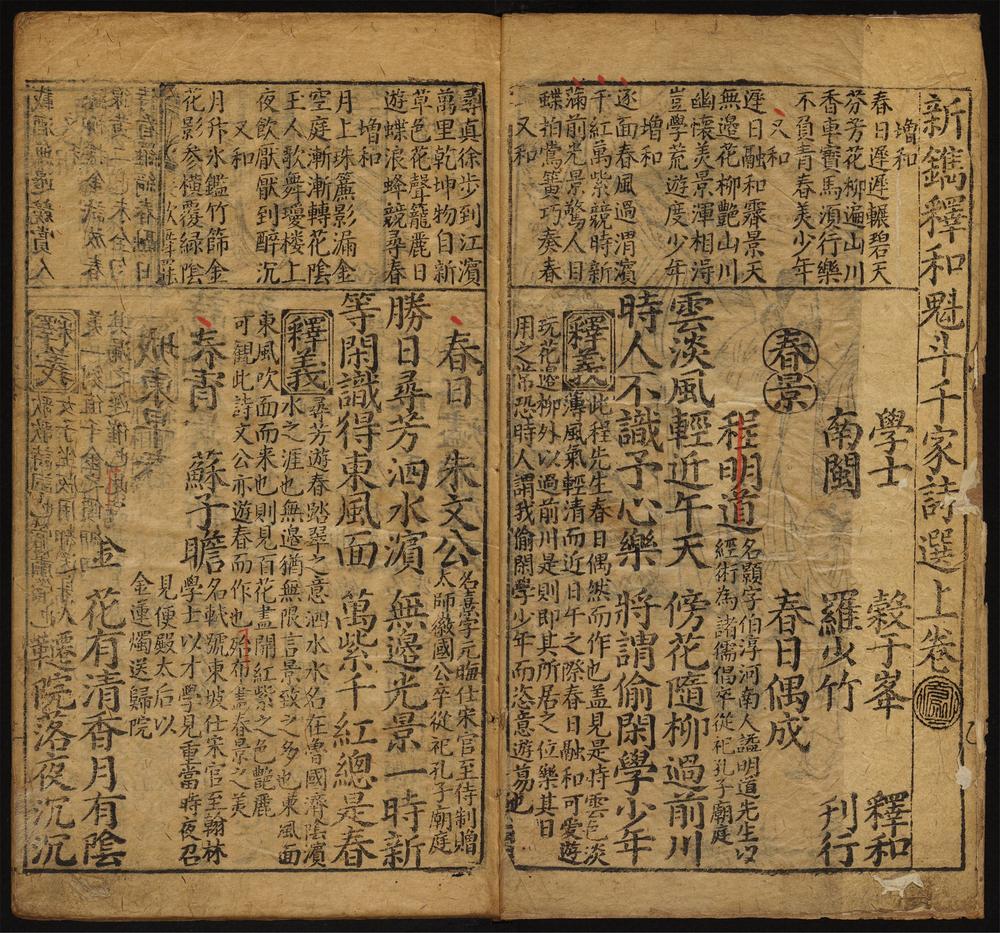 新鐫釋和魁斗千家詩選上卷
增和
春日遲遲輾碧天
芬芳花柳遍山川
香車寶馬須行樂
不負青春美少年
又和
遲日融和霽景天
無邊花柳艷山川
幽懷美景渾相得
豈學荒遊度少年
增和
逐面春風過渭濱
千紅萬紫競時新
滿前光景驚人目
蝶拍鶯簧巧奏春
又和
學士 穀于峯 釋和
南閩 羅少竹 刊行
春景 春日偶成
程明道 名顥字伯淳河南人謚明道先生以
經術為諸儒倡卒從祀孔子廟庭
雲淡風輕近午天 傍花隨柳過前川
時人不識予心樂 將謂偷閑學少年
釋義 此程先生春日偶然而作也盖見是時雲色淡
薄風氣輕清而近日午之際春日融和可愛遊
玩花邊柳外以過前川是則即其所居之位樂其日
用之常恐時人謂我偷閑學少年而恣意遊蕩也
尋真徐步到江濱
萬里乾坤物自新
草色花聲籠麗日
遊蝶浪蜂競尋春
增和
月上珠簾影漏金
空庭漸漸轉花陰
王人歌舞瓊樓上
夜飲厭厭到醉沉
又和
月升氷鑑竹篩金
花影參橫覆綠陰
春日 朱文公 名熹字元晦仕宋官至侍制贈
太師徽國公卒從祀孔子廟庭
勝日尋芳泗水濱 無邊光景一時新
等閑識得東風面 萬紫千紅總是春
釋義 尋芳遊春踏翠之意泗水水名在魯國濟陰濱
水之涯也無邊猶無限言景致之多也東風面
東風吹面而来也則見百花盡開紅紫之色艷麗
可観此詩文公亦遊春而作也殆布畫春景之美
春宵 蘇子瞻 名軾號東坡仕宋官至翰林
學士以才學見重當時夜召
見便殿太后以
金蓮燭送歸院
金 花有清香月有陰
院落夜沉沉